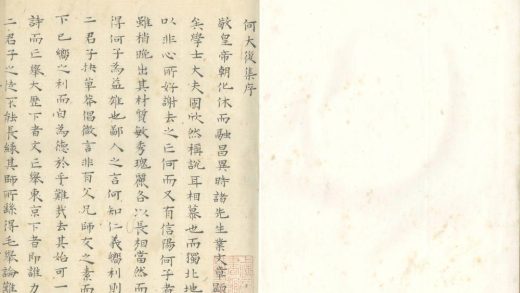 何大復集序
敬皇帝朝化休而融昌異時諸先生業文章顯
矣學士大夫固欣然稱說耳相慕也而獨北地
以非心所好謝去之亡何而又有信陽何子者
雖稍晚出其材質敏秀瓌麗各以長相當然而
得何子為益雄也鄙人之言何知仁義嚮利則
二君子抉草莽倡微言非有父兄師友之素而
下已嚮之利而自為德於乎難哉去其始可一
詩而亡舉大歷下者文亡舉東京下者即誰力
二君子之徒不能長緣其師所繇得毛舉論難